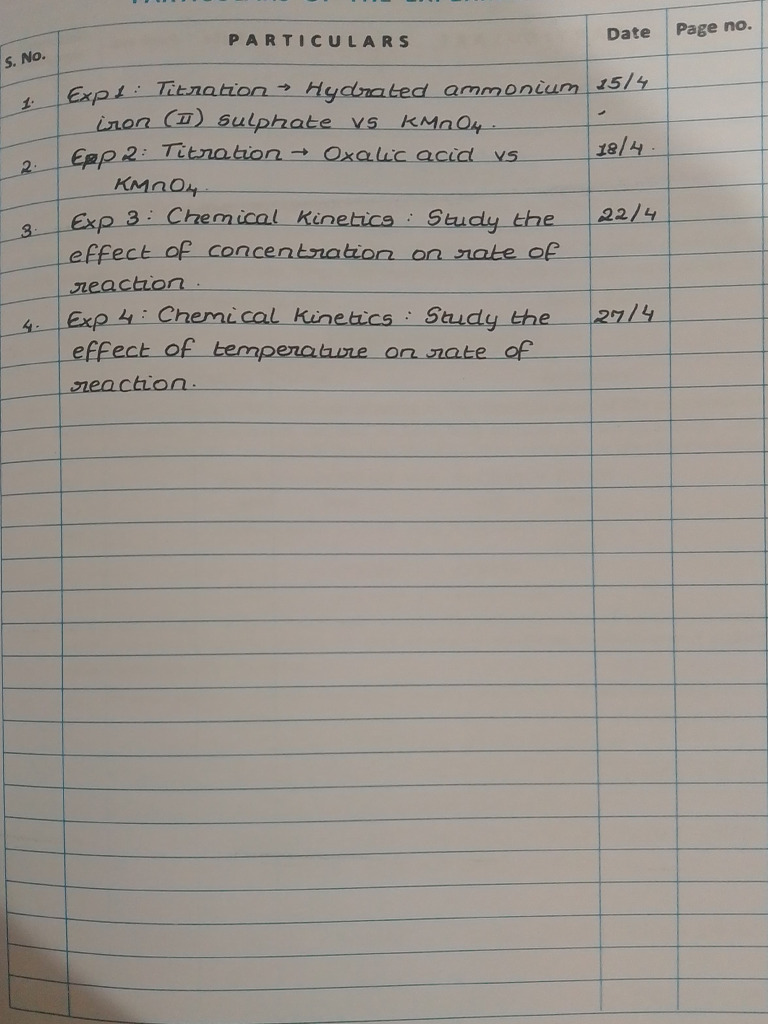 S. No. PARTICULARS Date Page no.
1. Exp 1 : Titration → Hydrated ammonium 15/4
iron (II) sulphate vs KMnO4.
2. Exp 2 : Titration → Oxalic acid vs 18/4.
KMnO4.
3. Exp 3 : Chemical Kinetics : Study the 22/4
effect of concentration on rate of
reaction.
4. Exp 4 : Chemical Kinetics : Study the 27/4
effect of temperature on rate of
reaction.